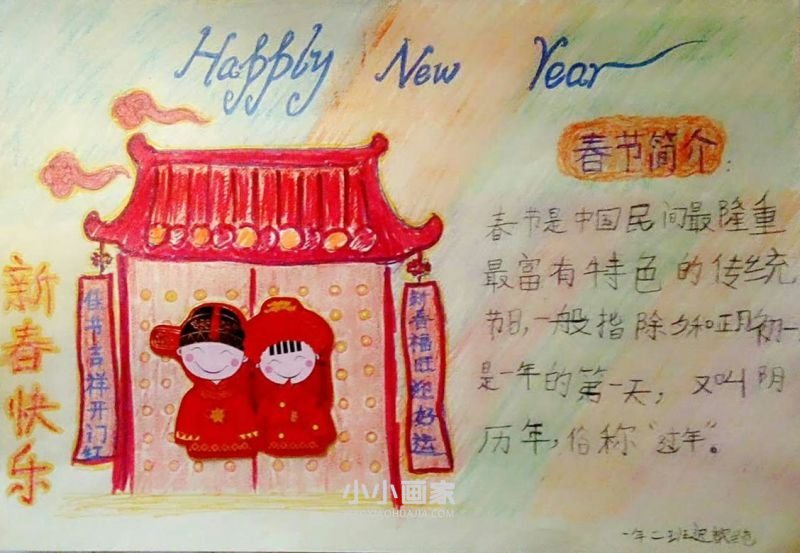 Happly New Year
春节简介:
春节是中国民间最隆重
最富有特色的传统
节日,一般指除夕和正月初一
是一年的第一天,又叫阴
历年,俗称“过年”。
新春快乐
佳节吉祥开门红
新春福旺迎好运
小小画家
XIAOXIAOHUAJIA.COM
一年二班